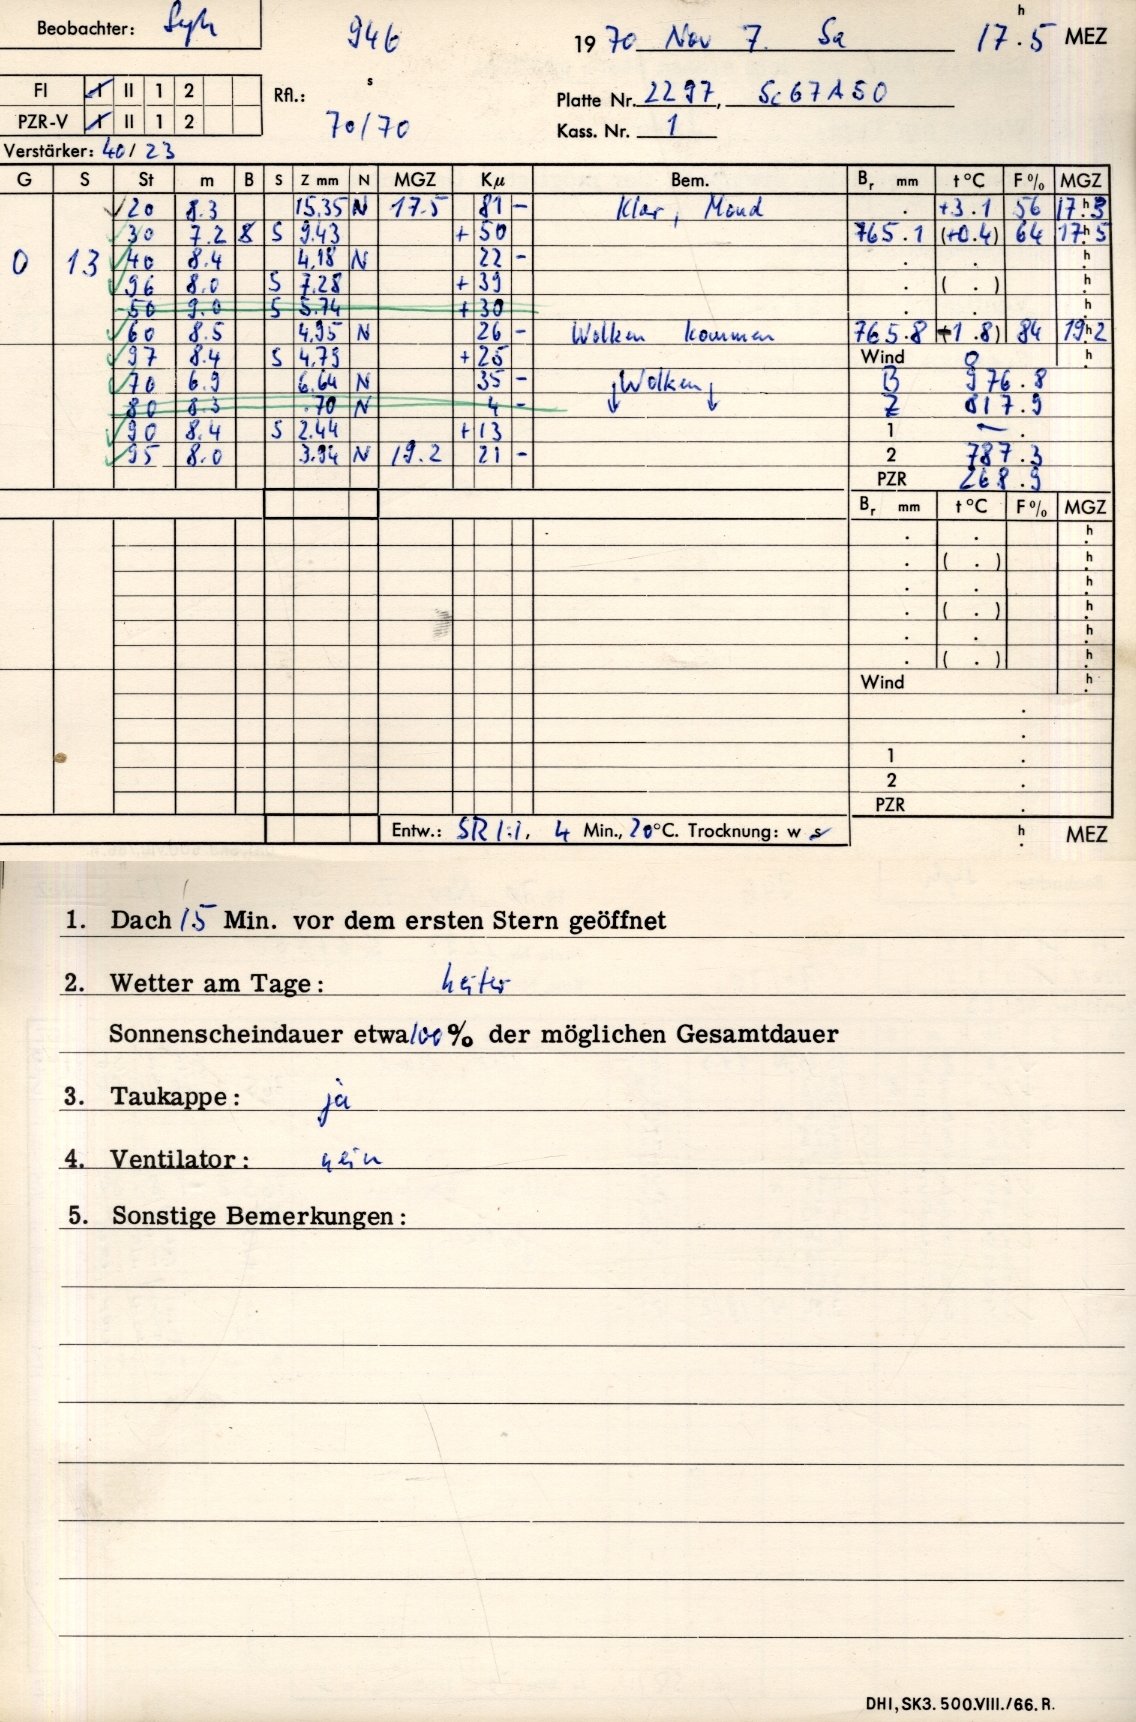 Beobachter: Syh 946 19 70 Nov 7. Sa 17.5 h MEZ
FI I II 1 2 Rfl.: s Platte Nr. 2297, Sc67A50
PZR-V I II 1 2 70/70 Kass. Nr. 1
Verstärker: 40/23
G S St m B S Z mm N MGZ Kμ Bem. Br mm t°C F% MGZ
20 8.3 15.35 N 17.5 81 - Klar, Mond . +3.1 56 17.h3
30 7.2 8 S 9.43 + 50 765.1 (+0.4) 64 17.h5
0 13 40 8.4 4.18 N 22 - . . h
96 8.0 S 7.28 + 39 . ( . ) h
50 9.0 S 5.74 + 30 . . h
60 8.5 4.95 N 26 - Wolken kommen 765.8 (+1.8) 84 19.h2
97 8.4 S 4.79 + 25 Wind 0 h
70 6.9 6.64 N 35 - ↓Wolken↓ B 976.8
80 8.3 .70 N 4 - Z 817.9
90 8.4 S 2.44 + 13 1 - .
95 8.0 3.94 N 19.2 21 - 2 787.3
PZR 268.9
Br mm t°C F% MGZ
. . h
. ( . ) h
. . h
. ( . ) h
. . h
. ( . ) h
Wind h
.
.
1 .
2 .
PZR .
Entw.: SR 1:1, 4 Min., 20°C. Trocknung: w s h MEZ
1. Dach 15 Min. vor dem ersten Stern geöffnet
2. Wetter am Tage: heiter
Sonnenscheindauer etwa 100 % der möglichen Gesamtdauer
3. Taukappe: ja
4. Ventilator: nein
5. Sonstige Bemerkungen:
DHI, SK3. 500.VIII./66. R.